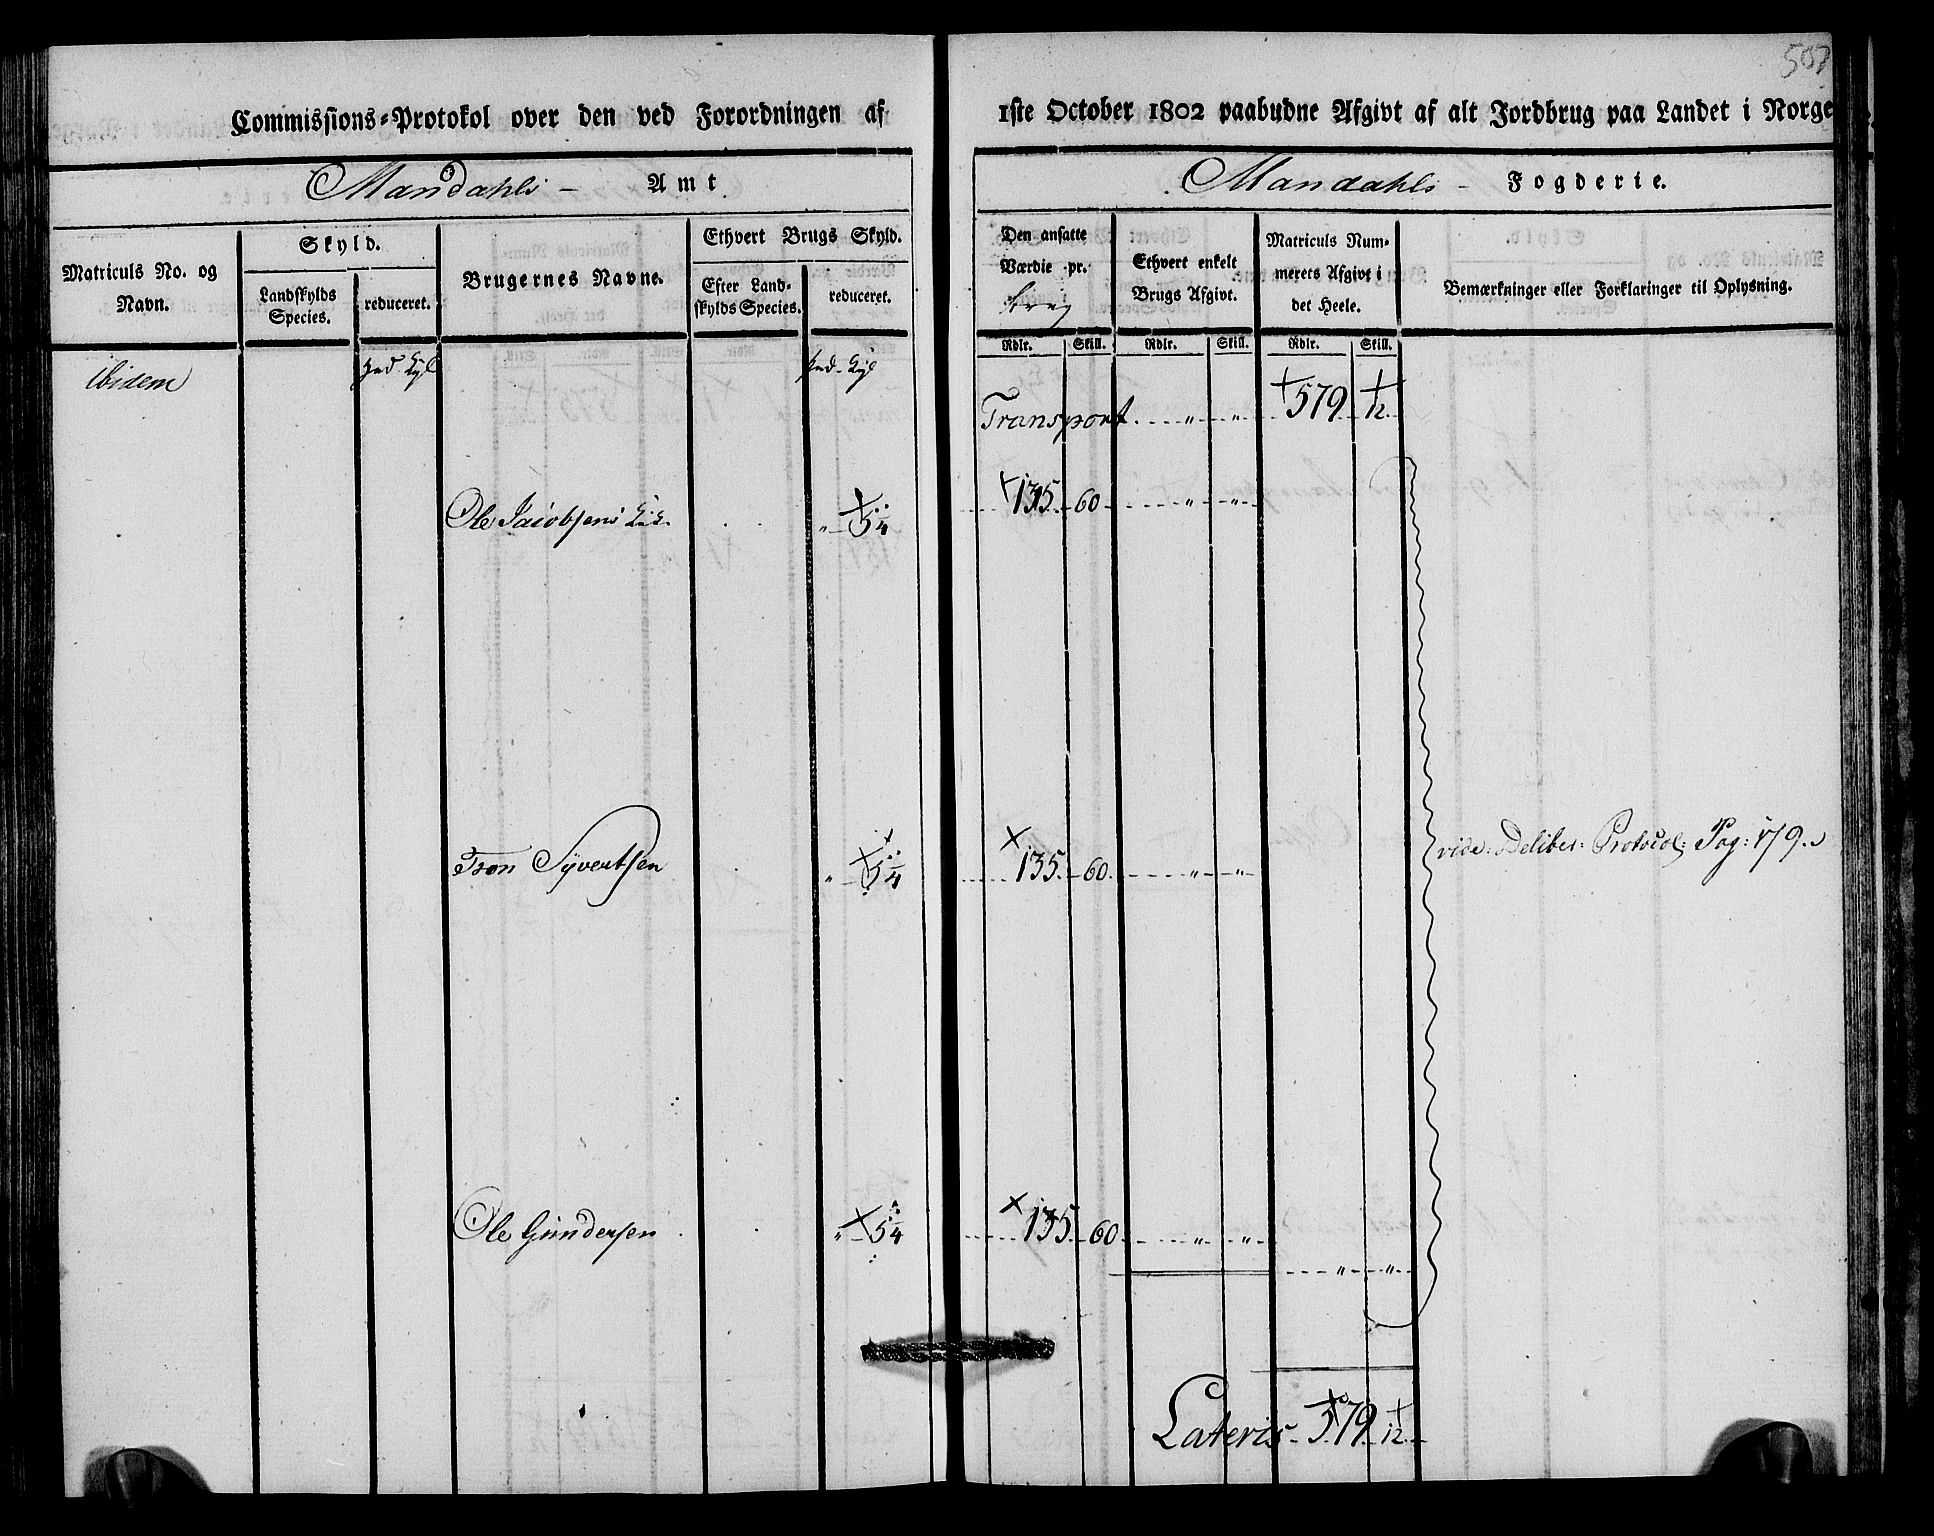 507
Commissions-Protokol over den ved Forordningen af 1ste October 1802 paabudne Afgivt af alt Jordbrug paa Landet i Norge
Mandahls - Amt. Mandahls - Fogderie.
Matriculs No. og Navn.
Skyld.
Landskylds Species.
reduceret.
Brugernes Navne.
Ethvert Brugs Skyld.
Efter Landskylds Species.
reduceret.
Den ansatte Værdie pr.
Ethvert enkelt Brugs Afgivt.
Matriculs Nummerets Afgivt i det Heele.
Bemærkninger eller Forklaringer til Oplysning.
Rdlr. Skill. Rdlr. Skill. Rdlr. Skill.
ibidem
Transport. " " 579 12.
Ole Jacobsens " 5/4 135. 60 " "
Tron Syvertsen " 5/4 135. 60. " " vide: Deliber: Protocol: Pag: 179.
Ole Gundersen " 5/4 135. 60 " "
" "
Lateris 579 12.